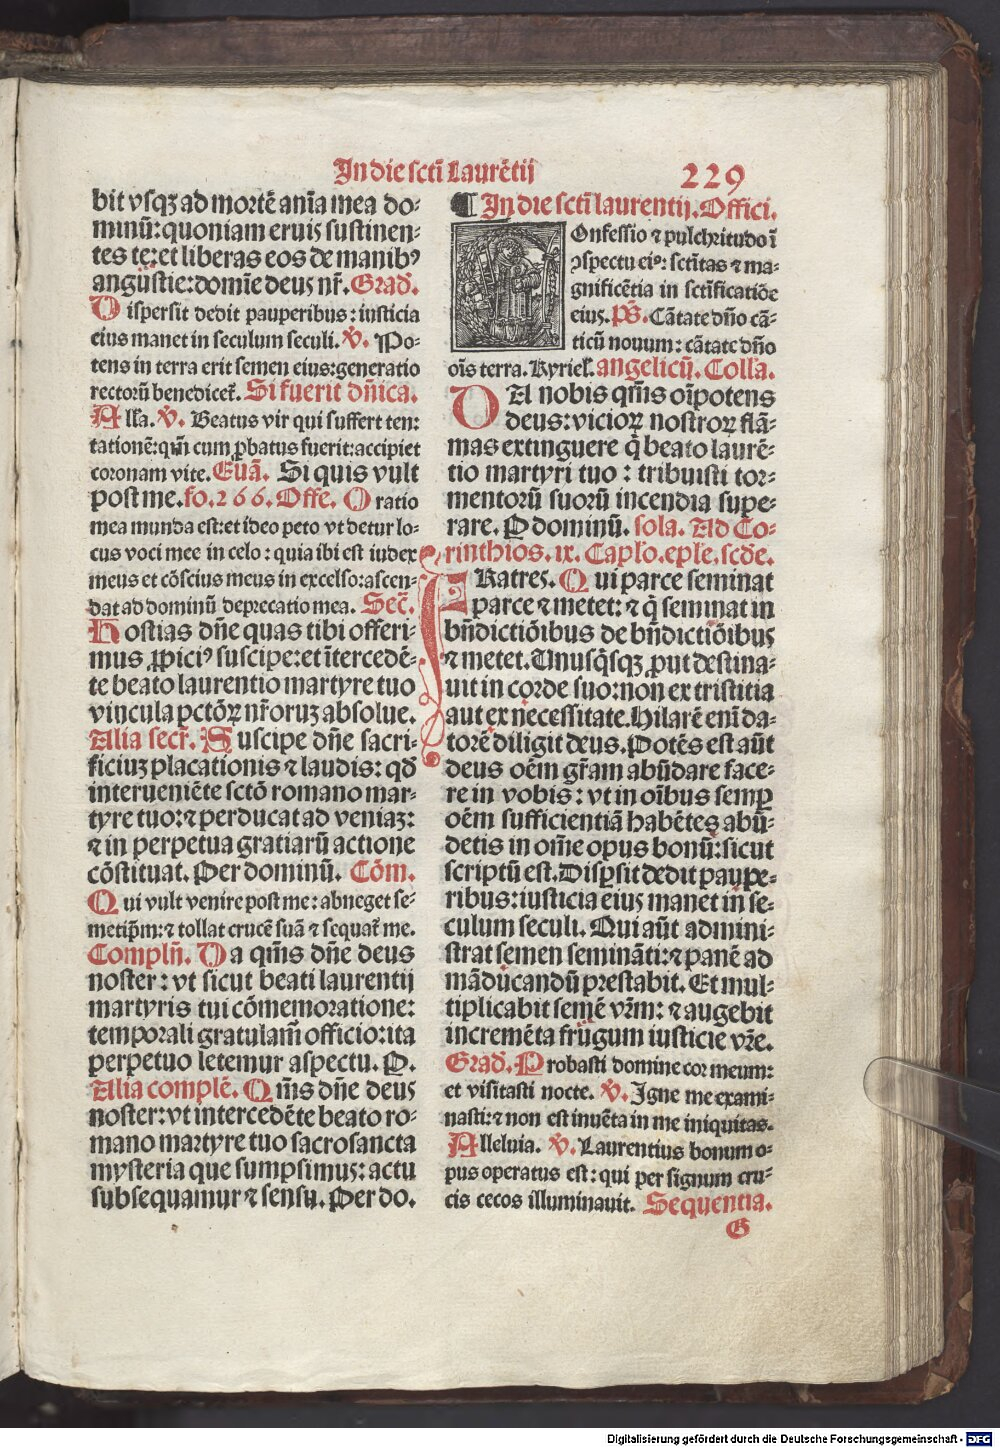 In die scti Laurētij 229
bit vsqꝫ ad mortē anīa mea do-
minū: quoniam eruis sustinen-
tes te: et liberas eos de manibꝰ
angustie: domīe deus nr̄. Grad.
Dispersit dedit pauperibus: iusticia
eius manet in seculum seculi. ℣. Po-
tens in terra erit semen eius: generatio
rectorū benedicet᷑. Si fuerit dn̄ica.
Alla. ℣. Beatus vir qui suffert ten:
tationē: qm̄ cum ꝓbatus fuerit: accipiet
coronam vite. Euā. Si quis vult
post me. fo. 266. Offe. Oratio
mea munda est: et ideo peto vt detur lo-
cus voci mee in celo: quia ibi est iudex
meus et cōscius meus in excelso: ascen-
dat ad dominū deprecatio mea. Sec̄.
Hostias dn̄e quas tibi offeri-
mus ꝓpiciꝰ suscipe: et ītercedē-
te beato laurentio martyre tuo
vincula pctōꝝ nr̄oruꝫ absolue.
Alia secr̄. Suscipe dn̄e sacri-
ficiuꝫ placationis ⁊ laudis: qd̄
interueniēte sctō romano mar-
tyre tuo: ⁊ perducat ad veniaꝫ:
⁊ in perpetua gratiarū actione
cōstituat. Per dominū. Cōm.
Qui vult venire post me: abneget se-
metip̄m: ⁊ tollat crucē suā ⁊ sequat᷑ me.
Compln̄. Da qm̄s dn̄e deus
noster: vt sicut beati laurentij
martyris tui cōmemoratione:
temporali gratulam̄ officio: ita
perpetuo letemur aspectu. P.
Alia complē. Qm̄s dn̄e deus
noster: vt intercedēte beato ro-
mano martyre tuo sacrosancta
mysteria que sumpsimus: actu
subsequamur ⁊ sensu. Per do.
¶ In die scti laurentij. Offici.
Onfessio ⁊ pulchritudo ī
ꝯspectu eiꝰ: sctītas ⁊ ma-
gnificētia in sctīficatiōe
eius. Ps̄. Cātate dn̄o cā-
ticū nouum: cātate dn̄o
oīs terra. Kyriel. angelicū. Colla.
DA nobis qm̄s oīpotens
deus: vicioꝝ nostroꝝ flā-
mas extinguere q̇ beato laurē-
tio martyri tuo: tribuisti tor-
mentorū suorū incendia supe-
rare. P dominū. sola. Ad Co-
rinthios. ix. Caplo. eple. scde.
FRatres. Qui parce seminat
parce ⁊ metet: ⁊ q̇ seminat in
bn̄dictiōibus de bn̄dictiōibus
⁊ metet. Unusq̇sqꝫ ꝓut destina-
uit in corde suo: non ex tristitia
aut ex necessitate. Hilarē enī da-
torē diligit deus. Potēs est aūt
deus oēm gr̄am abūdare face-
re in vobis: vt in oībus semꝑ
oēm sufficientiā habētes abū-
detis in om̄e opus bonū: sicut
scriptū est. Disꝑsit dedit paupe-
ribus: iusticia eius manet in se-
culum seculi. Qui aūt admini-
strat semen semināti: ⁊ panē ad
māducandū prestabit. Et mul-
tiplicabit semē vr̄m: ⁊ augebit
incremēta frugum iusticie vr̄e.
Grad. Probasti domine cor meum:
et visitasti nocte. ℣. Igne me exami-
nasti: ⁊ non est inuēta in me iniquitas.
Alleluia. ℣. Laurentius bonum o-
pus operatus est: qui per signum cru-
cis cecos illuminauit. Sequentia.
G
Digitalisierung gefördert durch die Deutsche Forschungsgemeinschaft - DFG